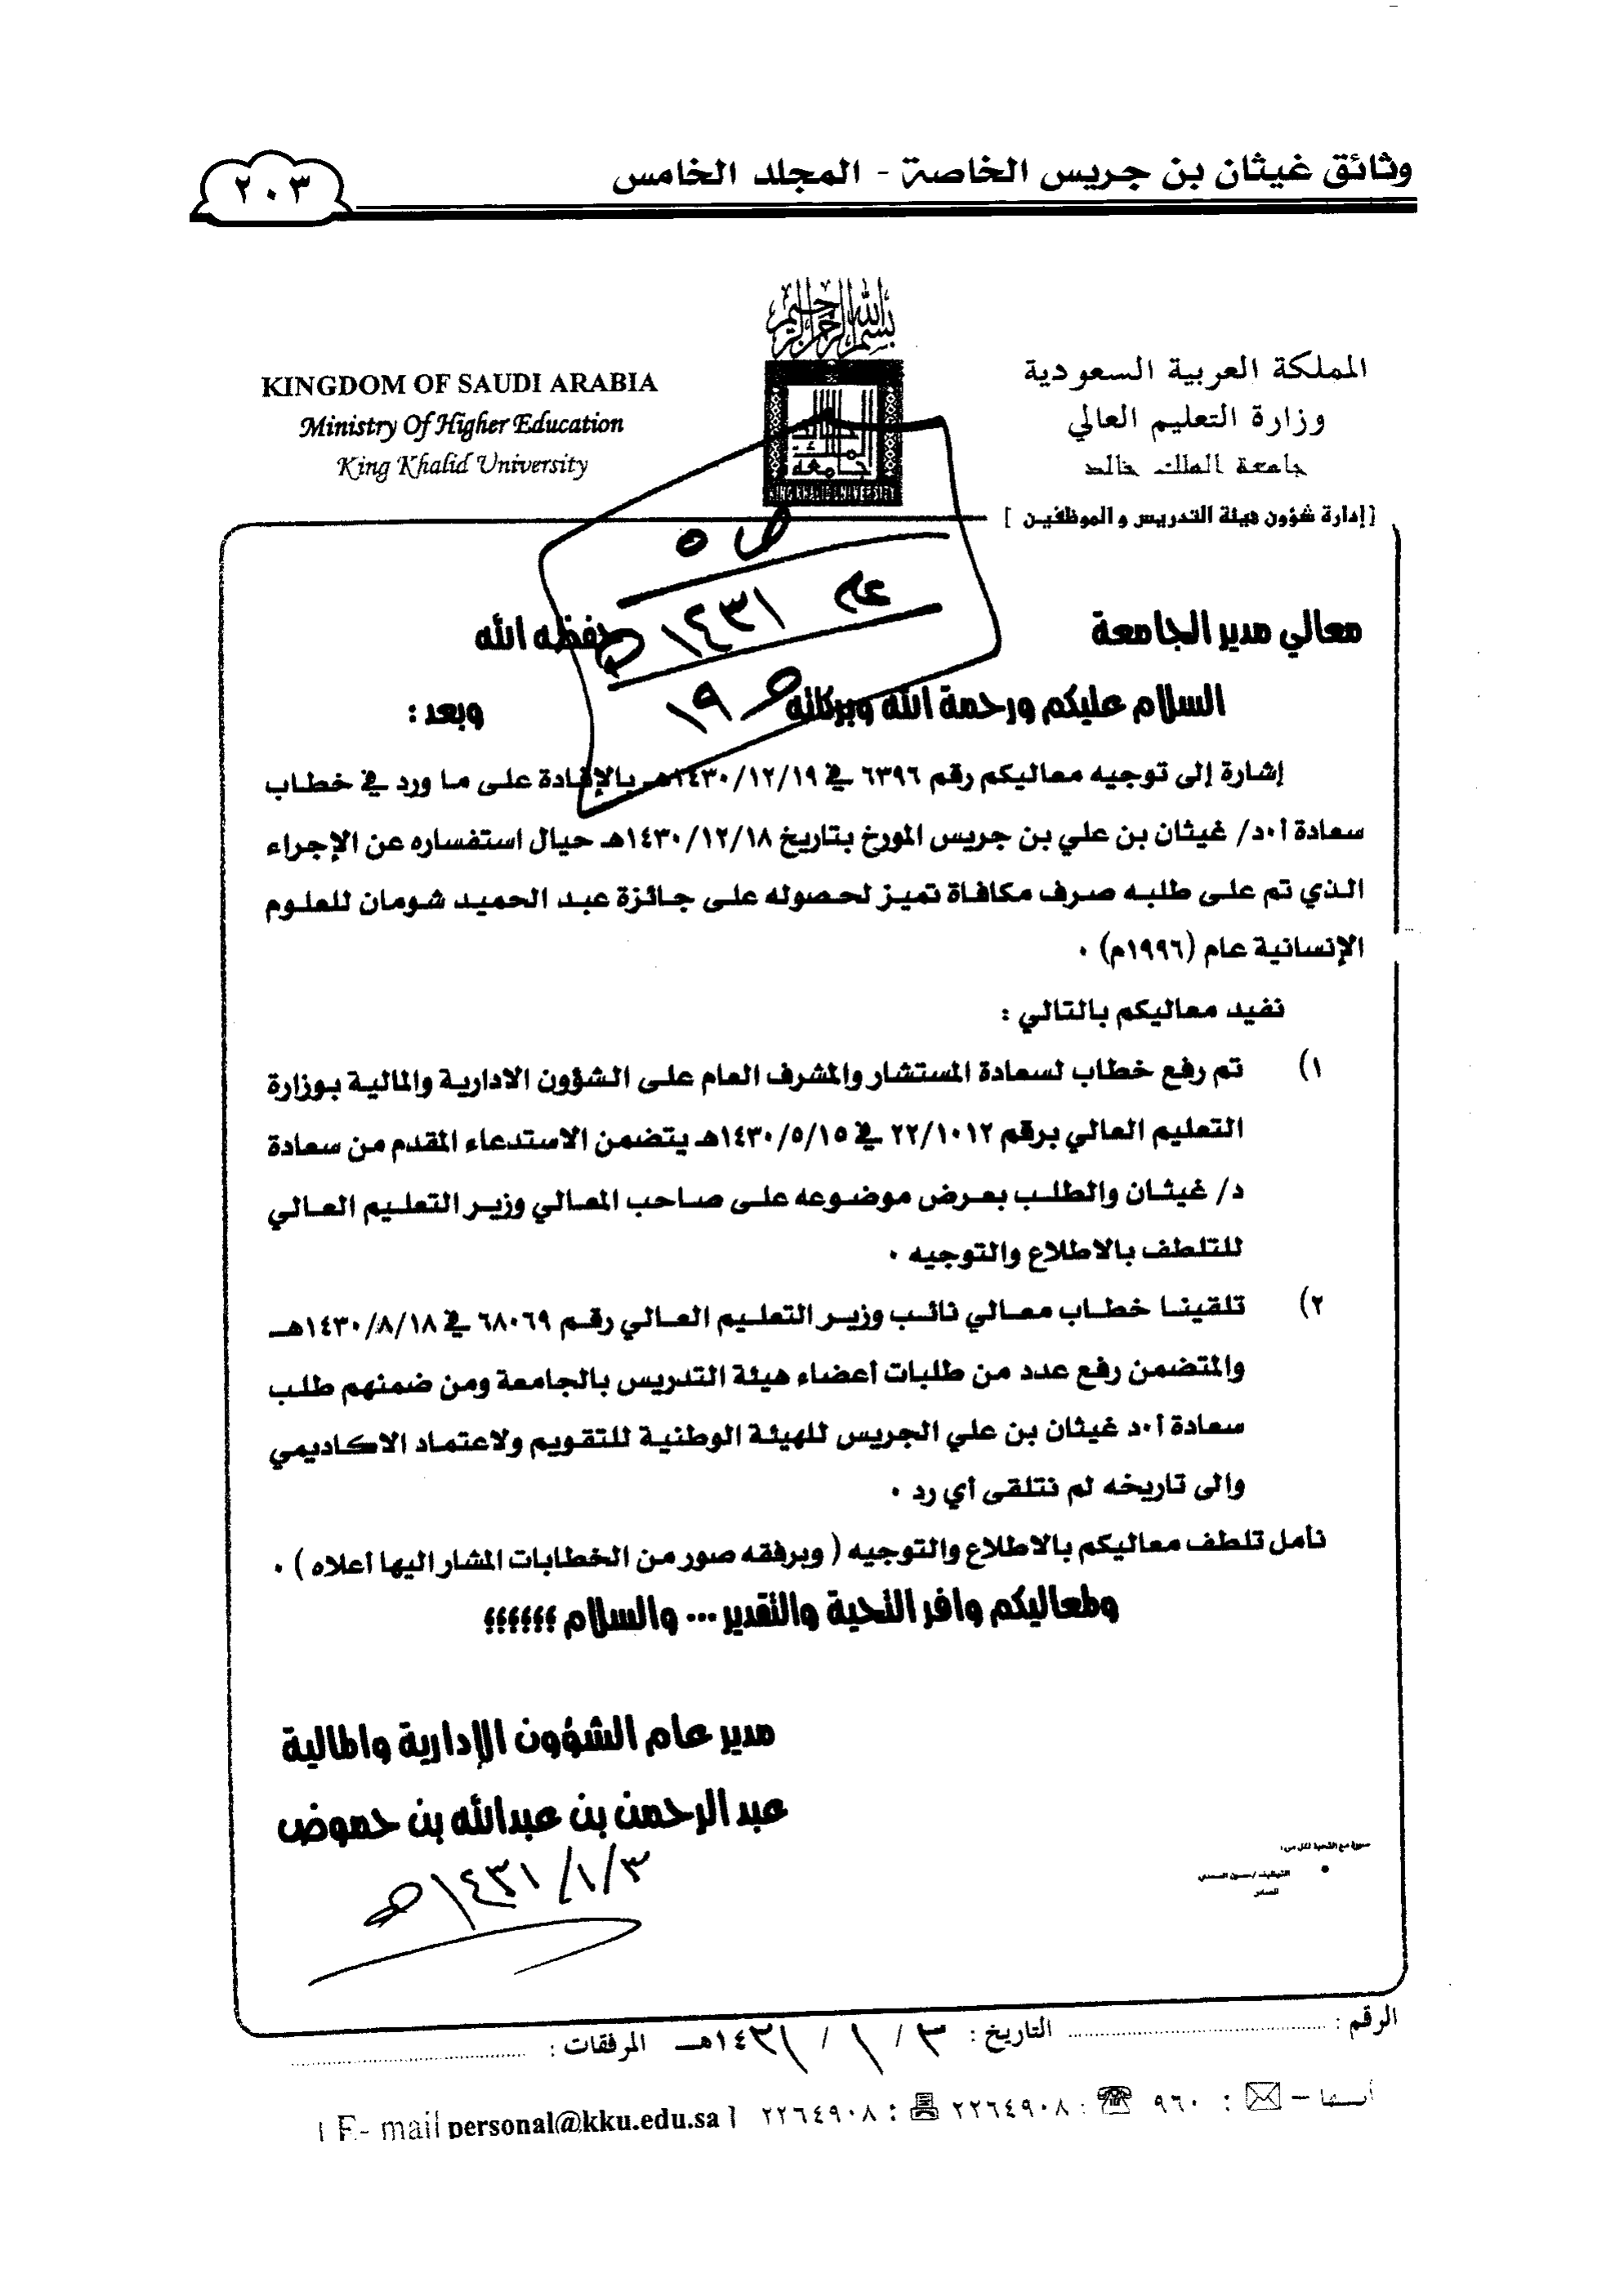 وثائق غيثان بن جريس الخاصة - المجلد الخامس
٢٠٣
بسم الله الرحمن الرحيم
المملكة العربية السعودية
وزارة التعليم العالي
جامعة الملك خالد
[إدارة شؤون هيئة التدريس والموظفين]
KINGDOM OF SAUDI ARABIA
Ministry Of Higher Education
King Khalid University
KING KHALID UNIVERSITY
ص ٥
عام ١٤٣١هـ
ص ١٩
معالي مدير الجامعة حفظه الله
السلام عليكم ورحمة الله وبركاته وبعد :
إشارة إلى توجيه معاليكم رقم ٦٣٩٦ في ١٤٣٠/١٢/١٩هـ بالإفادة على ما ورد في خطاب
سعادة أ٠د/ غيثان بن علي بن جريس المورخ بتاريخ ١٤٣٠/١٢/١٨هـ حيال استفساره عن الإجراء
الذي تم على طلبه صرف مكافاة تميز لحصوله على جائزة عبد الحميد شومان للعلوم
الإنسانية عام (١٩٩٦م) ٠
نفيد معاليكم بالتالي :
١) تم رفع خطاب لسعادة المستشار والمشرف العام على الشؤون الادارية والمالية بوزارة
التعليم العالي برقم ٢٢/١٠١٢ في ١٤٣٠/٥/١٥هـ يتضمن الاستدعاء المقدم من سعادة
د/ غيثان والطلب بعرض موضوعه على صاحب المعالي وزير التعليم العالي
للتلطف بالاطلاع والتوجيه ٠
٢) تلقينا خطاب معالي نائب وزير التعليم العالي رقم ٦٨٠٦٩ في ١٤٣٠/٨/١٨هـ
والمتضمن رفع عدد من طلبات أعضاء هيئة التدريس بالجامعة ومن ضمنهم طلب
سعادة أ٠د غيثان بن علي الجريس للهيئة الوطنية للتقويم ولاعتماد الاكاديمي
والى تاريخه لم نتلقى أي رد ٠
نأمل تلطف معاليكم بالاطلاع والتوجيه ( وبرفقه صور من الخطابات المشار اليها أعلاه ) ٠
ولمعاليكم وافر التحية والتقدير ... والسلام ؛؛؛؛؛؛
مدير عام الشؤون الإدارية والمالية
عبد الرحمن بن عبدالله بن حموض
١٤٣١/١/٣هـ
صورة مع التحية لكل من :
الصادر
الرقم : التاريخ : ٣ / ١ / ١٤٣١هـ المرفقات :
أبها – : ٩٦٠ : ٢٢٦٤٩٠٨ : ٢٢٦٤٩٠٨ [ E- mail personal@kku.edu.sa ]